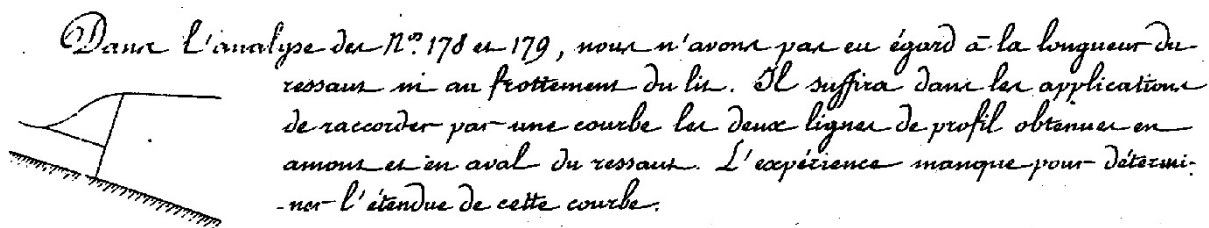 Dans l'analyse des N.os 178 et 179, nous n'avons pas eu égard à la longueur du
ressaut ni au frottement du lit. Il suffira dans les applications
de raccorder par une courbe les deux lignes de profil obtenues en
amont et en aval du ressaut. L'expérience manque pour détermi-
-ner l'étendue de cette courbe.